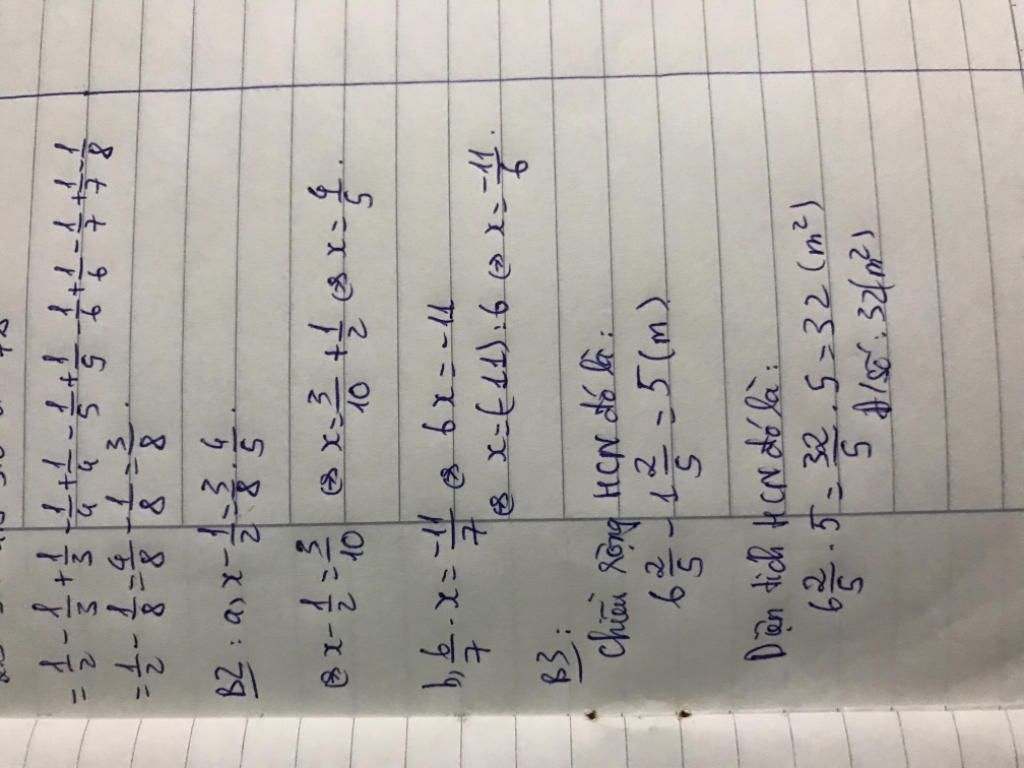 = 1/2 - 1/3 + 1/3 - 1/4 + 1/4 - 1/5 + 1/5 - 1/6 + 1/6 - 1/7 + 1/7 - 1/8
= 1/2 - 1/8 = 4/8 - 1/8 = 3/8.
B2: a, x - 1/2 = 3/8 . 4/5.
⇔ x - 1/2 = 3/10 ⇔ x = 3/10 + 1/2 ⇔ x = 4/5.
b, 6/7 . x = -11/7 ⇔ 6x = -11
⇔ x = (-11) : 6 ⇔ x = -11/6.
B3:
Chiều rộng HCN đó là:
6 2/5 - 1 2/5 = 5 (m)
Diện tích HCN đó là:
6 2/5 . 5 = 32/5 . 5 = 32 (m²)
Đ/số: 32(m²)